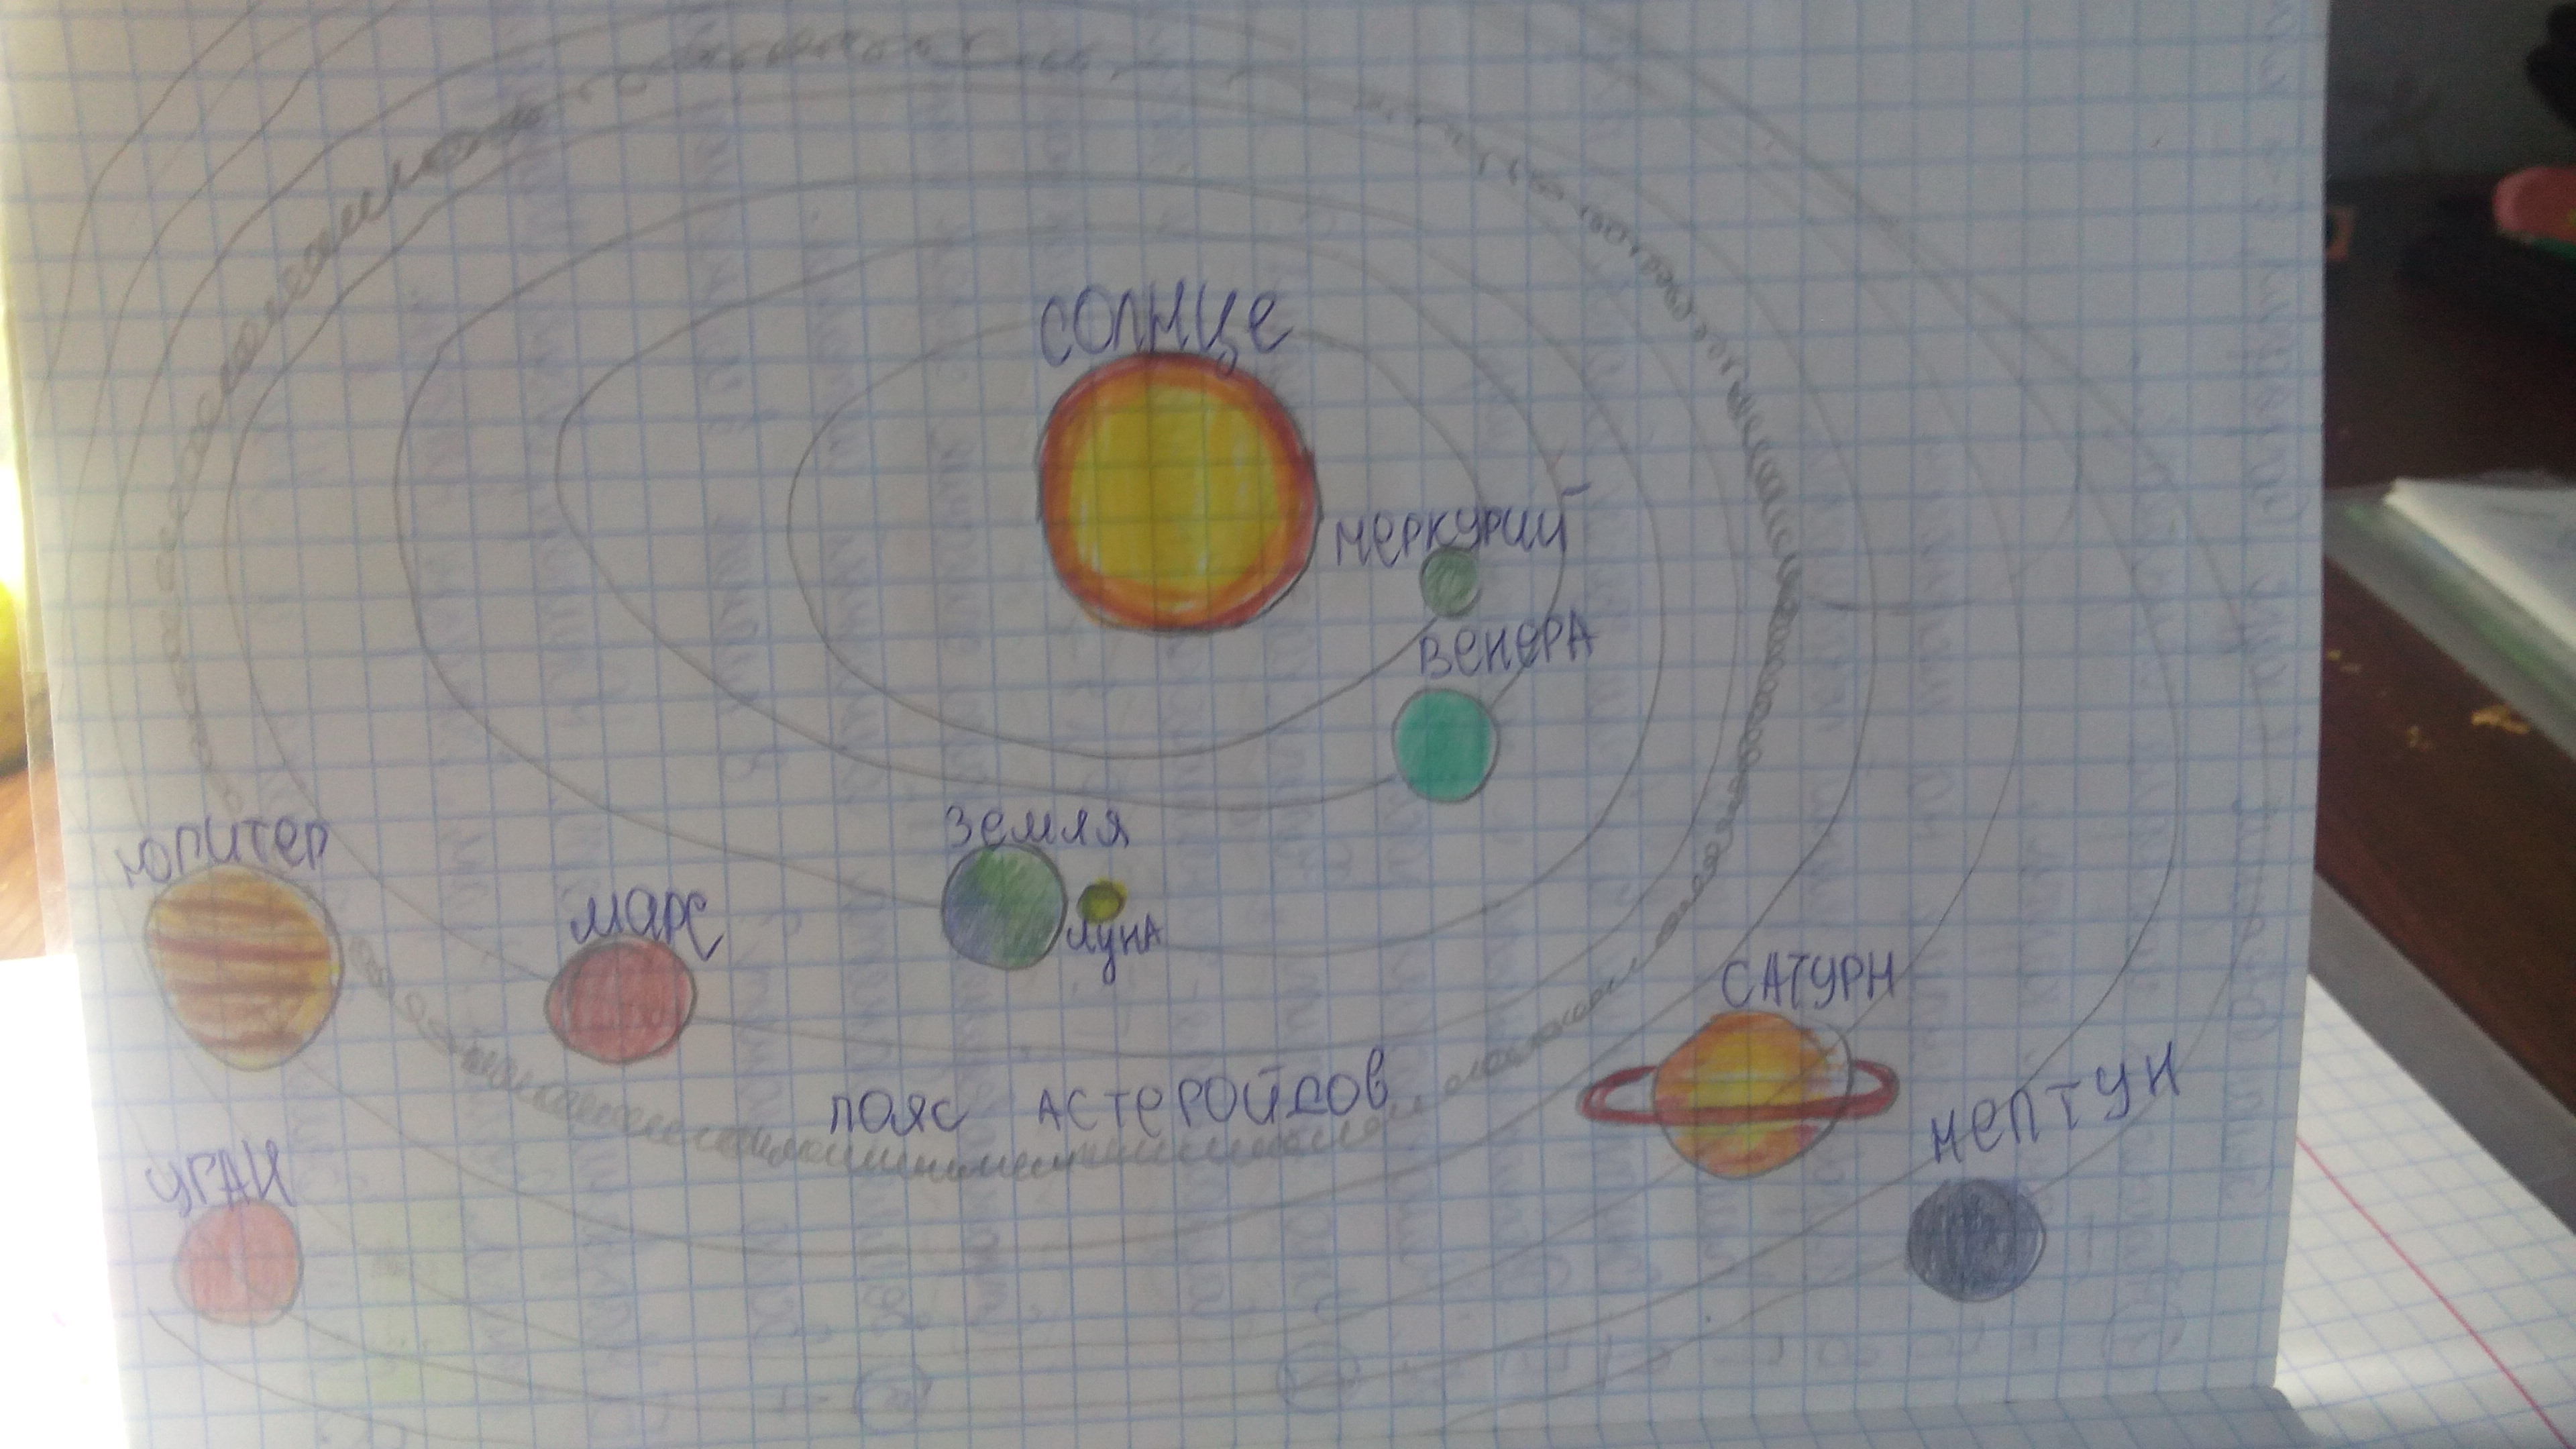 СОЛНЦЕ
МЕРКУРИЙ
ВЕНЕРА
ЗЕМЛЯ
ЛУНА
МАРС
ЮПИТЕР
ПОЯС АСТЕРОЙДОВ
САТУРН
УРАН
НЕПТУН